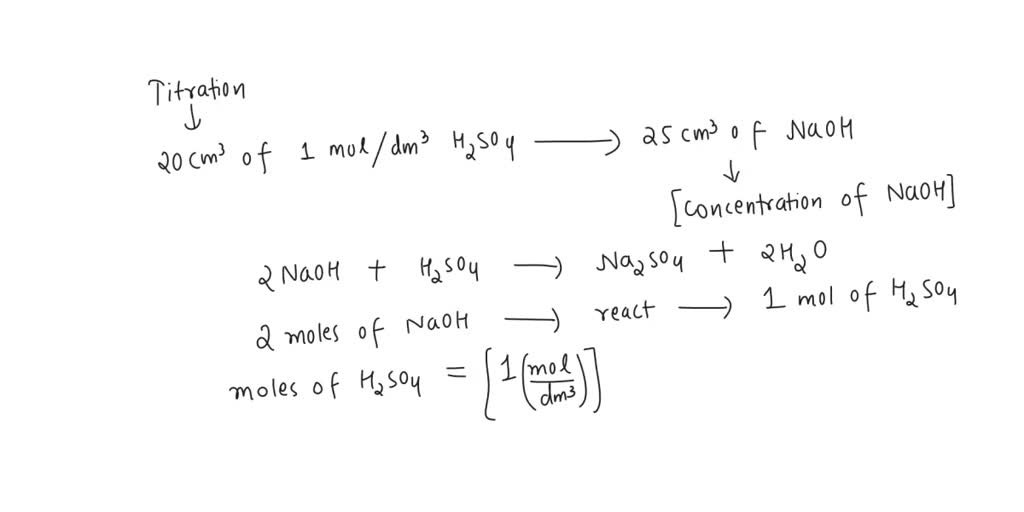 Titration
↓
20 cm³ of 1 mol/dm³ H₂SO₄ ⟶ 25 cm³ of NaOH
↓
[concentration of NaOH]
2 NaOH + H₂SO₄ ⟶ Na₂SO₄ + 2H₂O
2 moles of NaOH ⟶ react ⟶ 1 mol of H₂SO₄
moles of H₂SO₄ = [1(mol/dm³)]